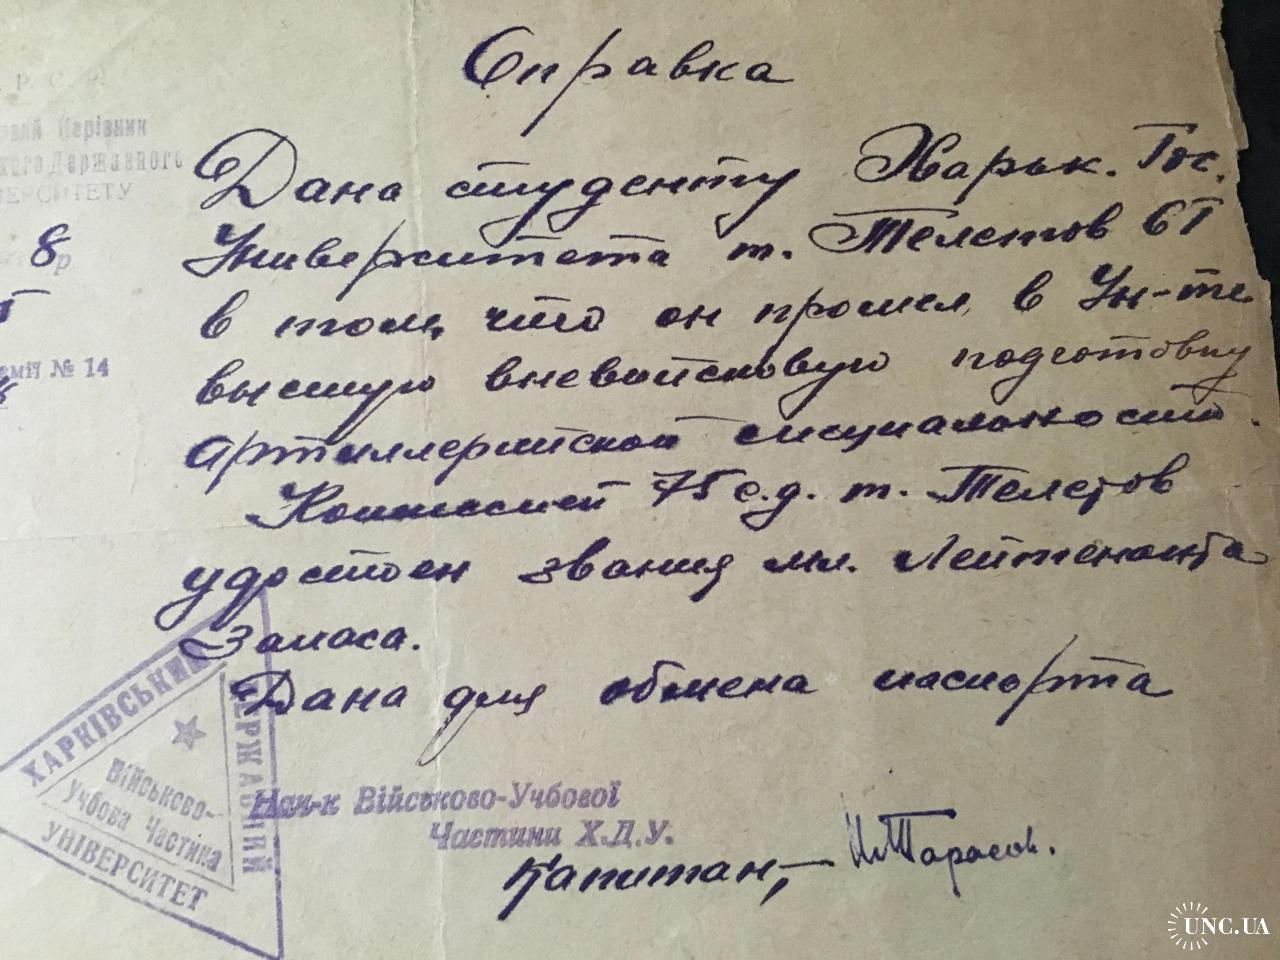 Справка
Р.С.
Керівник
Державного
8р
№ 14
Дана студенту Харьк. Гос.
Университета т. Телетов
в том, что он прошел в Ун-те
высшую вневойсковую подготовку
артиллерийской специальности.
Комиссией 75 с.д. т. Телетов
удостоен звания мл. Лейтенанта
Запаса.
Дана для обмена паспорта
ХАРКІВСЬКИЙ
ДЕРЖАВНИЙ
УНІВЕРСИТЕТ
Військово-
Учбова Частина
Нач-к Військово-Учбової
Частини Х.Д.У.
Капитан, — Тарасов.
UNC.UA